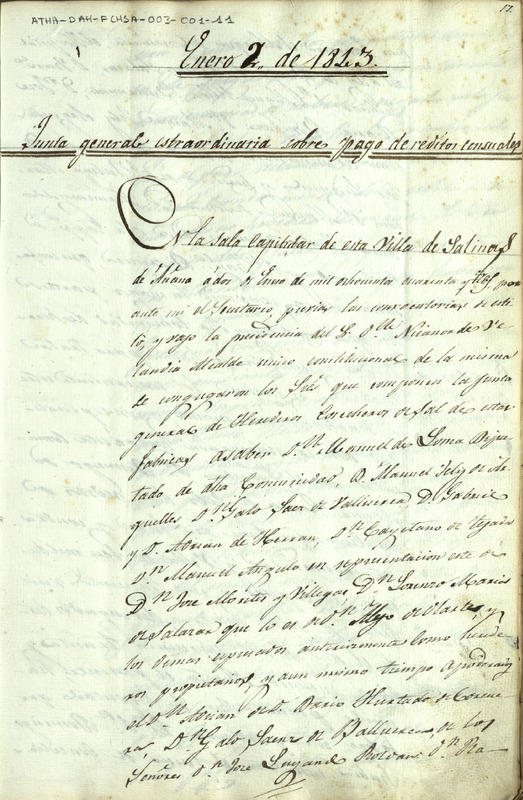 17.
ATHA-DAH-FCHSA-003-C01-11
Enero 2,, de 1843.
Junta general estraordinaria sobre pago de reditos censuales
EN la sala Capitular de esta Villa de Salinas
de Añana á dos de Enero de mil ochocientos cuarenta y tres, por
ante mi el Secretario, previas las convocatorias de esti
lo, y vajo la presidencia del S. Dn. Nicanor de Ve
landia Alcalde unico constitucional de la misma
se congregaron los Sres. que componen la Junta
general de Herederos Cosecheros de Sal de estas
fabricas, asaber Dn. Manuel de Loma Dipu
tado de dha Comunidad, D. Manuel
Dn. Galo Saez de Valluerca, Dn. Gabriel
y D. Adrian de Herran, Dn. Cayetano de Tejada
Dn. Manuel Angulo en representacion este de
Dn. Jose Montes y Villegas, Dn. Lorenzo Maria
de Salazar que lo es de Dn. Alejo de Olarte, y
los demas espresados anteriormente como herede
ros propietarios, y aun mismo tiempo apoderados
el Dn. Adrian de D. Dario Hurtado de Corcue
ra, Dn. Galo Saenz de Valluerca, de los
Señores Dn. Jose Luyando Dn. Ra-